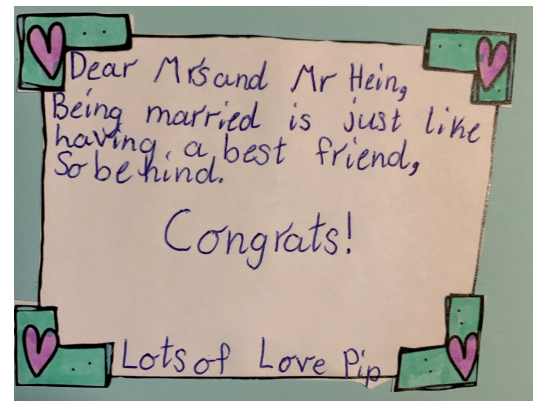 Dear Mrs and Mr Hein,
Being married is just like
having a best friend,
So be kind.
Congrats!
Lots of Love Pip